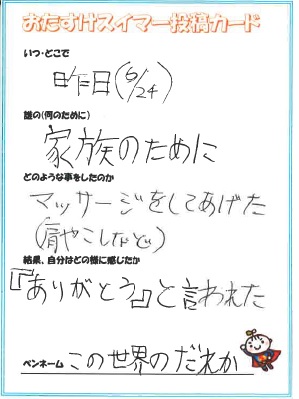 おたすけスイマー投稿カード
いつ・どこで
昨日(6/24)
誰の(何のために)
家族のために
どのような事をしたのか
マッサージをしてあげた
(肩やこしなど)
結果、自分はどの様に感じたか
『ありがとう』と言われた
ペンネーム この世界のだれか